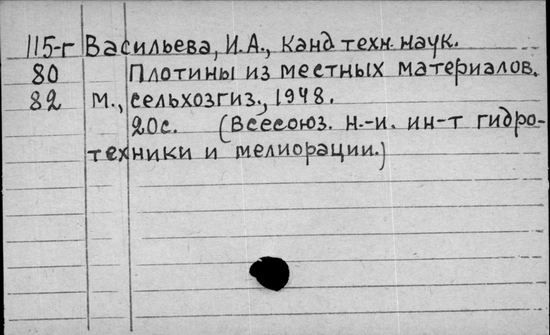 115-г Васильева, И.А., канд техн. наук.
80 Плотины из местных материалов.
82 М., сельхозгиз., 1948.
20с. (Всесоюз. н.-и. ин-т гидро-
техники и мелиорации.)